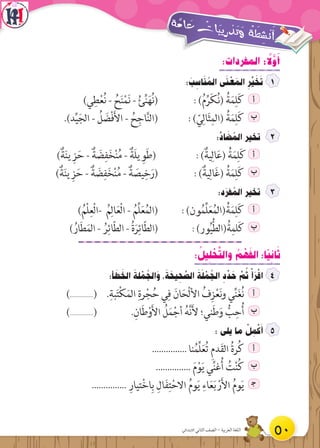 أَنْشِطَةٌ وَتَدْرِيبَاتٌ عَامَّة
أَوَّلًا: المفردات:
١ تَخَيَّرِ الْمَعْنَى الْمُنَاسِبَ:
أ كَلِمَةُ (نُكْرِمُ) : (نُهَنِّئُ - نَمْنَحُ - نُعْطِي)
ب كَلِمَةُ (المِثَالِيِّ) : (النَّاجِحُ - الْأَفْضَلُ - الجَيِّد).
٢ تخير المُضَادَّ:
أ كَلِمَةُ (عَالِيَةٌ) : (طَوِيلَةٌ - مُنْخَفِضَةٌ - حَزِينَةٌ)
ب كَلِمَةُ (غَالِيَةٌ) : (رَخِيصَةٌ - مُنْخَفِضَةٌ - حَزِينَةٌ)
٣ تخير المُفرَد:
أ كَلِمَةُ(الْمُعَلِّمُونَ) : (الْمُعَلِّمُ - الْعَالِمُ - الْعِلْمُ)
ب كَلِمَةُ(الطُّيُورِ) : (الطَّائِرَةُ - الطَّائِرُ - الْمَطَارُ)
ثَانِيًا: الْفَهْمُ وَالتَّحْلِيلُ:
٤ اقْرَأْ ثُمَّ حَدِّدِ الْجُمْلَةَ الصَّحِيحَةَ، وَالْجُمْلَةَ الْخَطَأَ:
أ نُغَنِّي وَنَعْزِفُ الْأَلْحَانَ فِي حُجْرَةِ الْمَكْتَبَةِ. (..........)
ب أُحِبُّ وَطَنِي؛ لِأَنَّهُ أَجْمَلُ الْأَوْطَانِ. (..........)
٥ أَكْمِلْ ما يلى :
أ كُرَةُ القَدَمِ تُعَلِّمُنَا ...............
ب كُنْتُ أُغَنِّي يَوْمَ ...............
جـ يَوْمُ الْأَرْبِعَاءِ يَوْمُ الاحْتِفَالِ بِاخْتِيَارِ ...............
اللغة العربية - الصف الثاني الابتدائي
٥٠